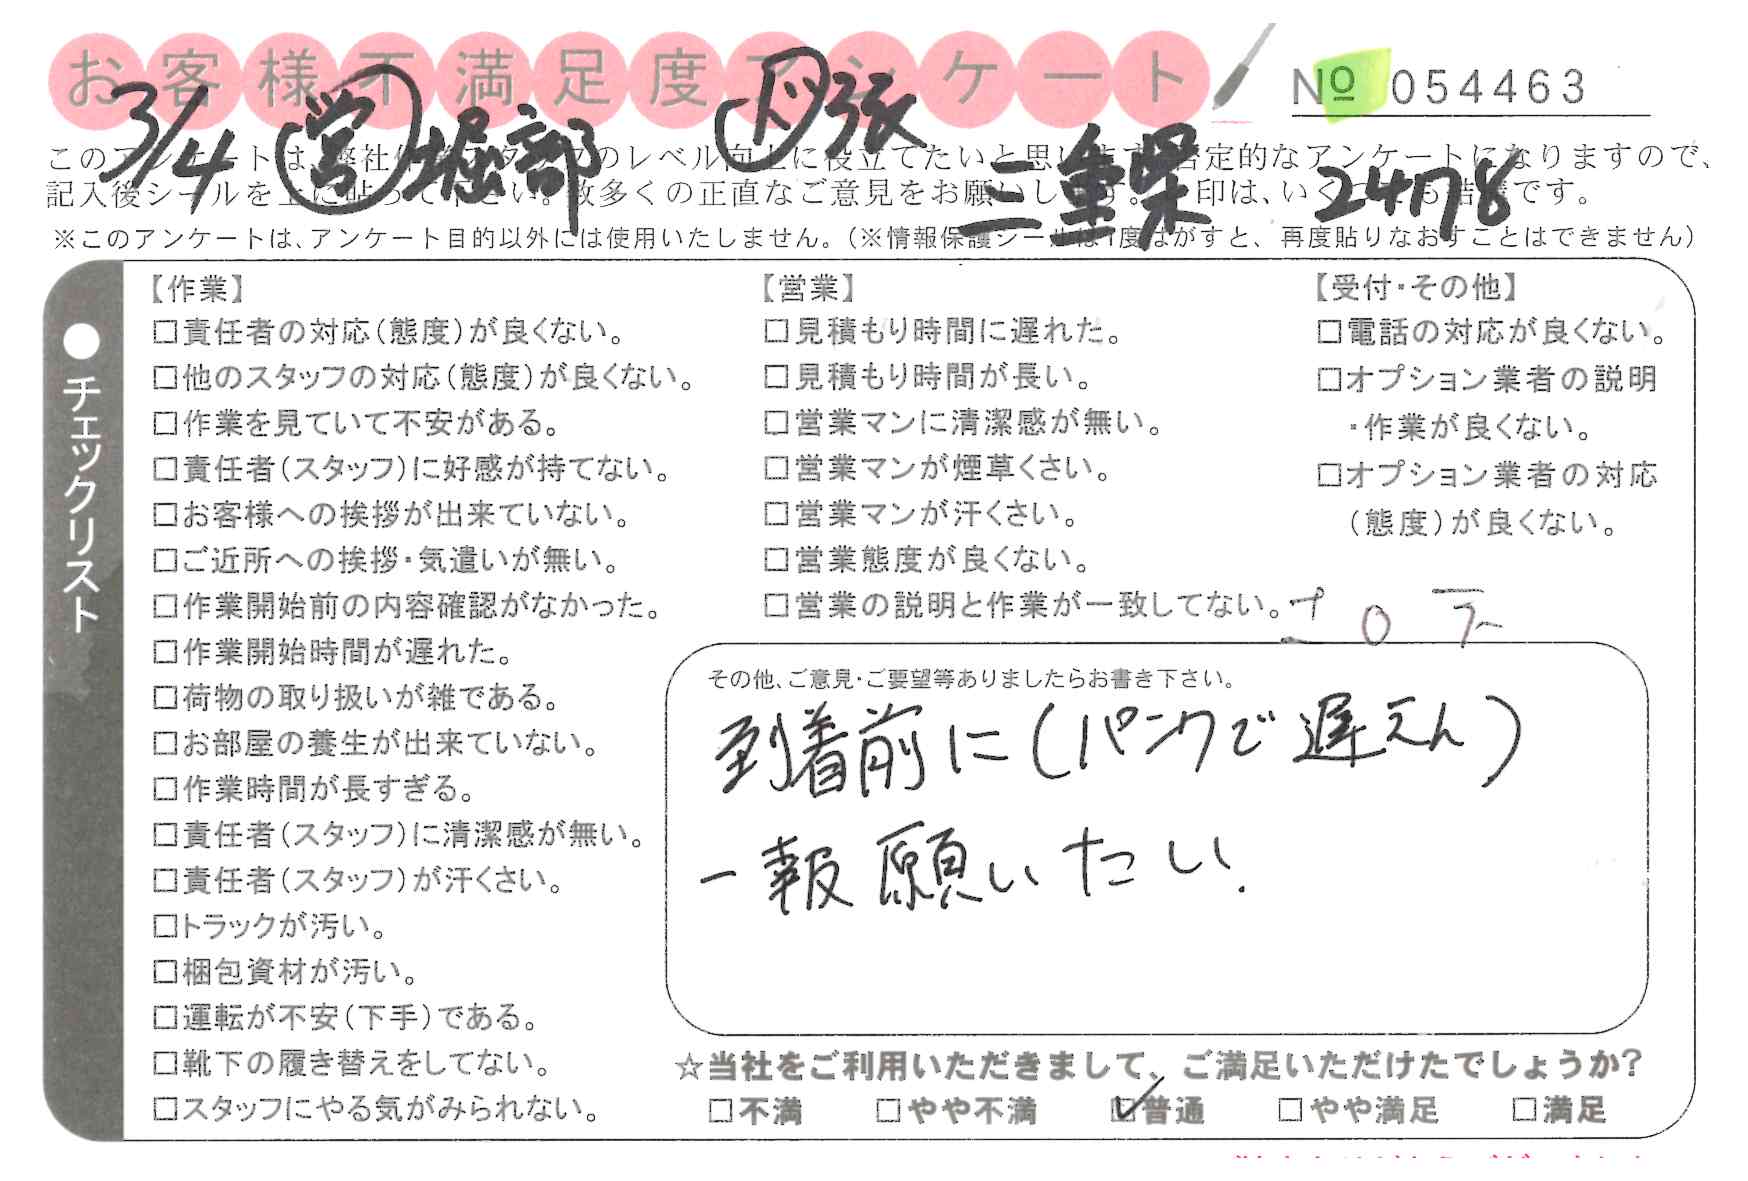 お客様不満足度アンケート
№054463
3/4 営 堀部 ド 張 三重県 24178
このアンケートは、弊社作業スタッフのレベル向上に役立てたいと思います。否定的なアンケートになりますので、
記入後シールを上に貼って下さい。数多くの正直なご意見をお願いします。✓印は、いくつでも結構です。
※このアンケートは、アンケート目的以外には使用いたしません。(※情報保護シールは1度はがすと、再度貼りなおすことはできません)
●チェックリスト
【作業】
□責任者の対応(態度)が良くない。
□他のスタッフの対応(態度)が良くない。
□作業を見ていて不安がある。
□責任者(スタッフ)に好感が持てない。
□お客様への挨拶が出来ていない。
□ご近所への挨拶・気遣いが無い。
□作業開始前の内容確認がなかった。
□作業開始時間が遅れた。
□荷物の取り扱いが雑である。
□お部屋の養生が出来ていない。
□作業時間が長すぎる。
□責任者(スタッフ)に清潔感が無い。
□責任者(スタッフ)が汗くさい。
□トラックが汚い。
□梱包資材が汚い。
□運転が不安(下手)である。
□靴下の履き替えをしてない。
□スタッフにやる気がみられない。
【営業】
□見積もり時間に遅れた。
□見積もり時間が長い。
□営業マンに清潔感が無い。
□営業マンが煙草くさい。
□営業マンが汗くさい。
□営業態度が良くない。
□営業の説明と作業が一致してない。
【受付・その他】
□電話の対応が良くない。
□オプション業者の説明
・作業が良くない。
□オプション業者の対応
(態度)が良くない。
その他、ご意見・ご要望等ありましたらお書き下さい。
到着前に(パンクで遅えん)
一報願いたい.
☆当社をご利用いただきまして、ご満足いただけたでしょうか?
□不満 □やや不満 ☑普通 □やや満足 □満足